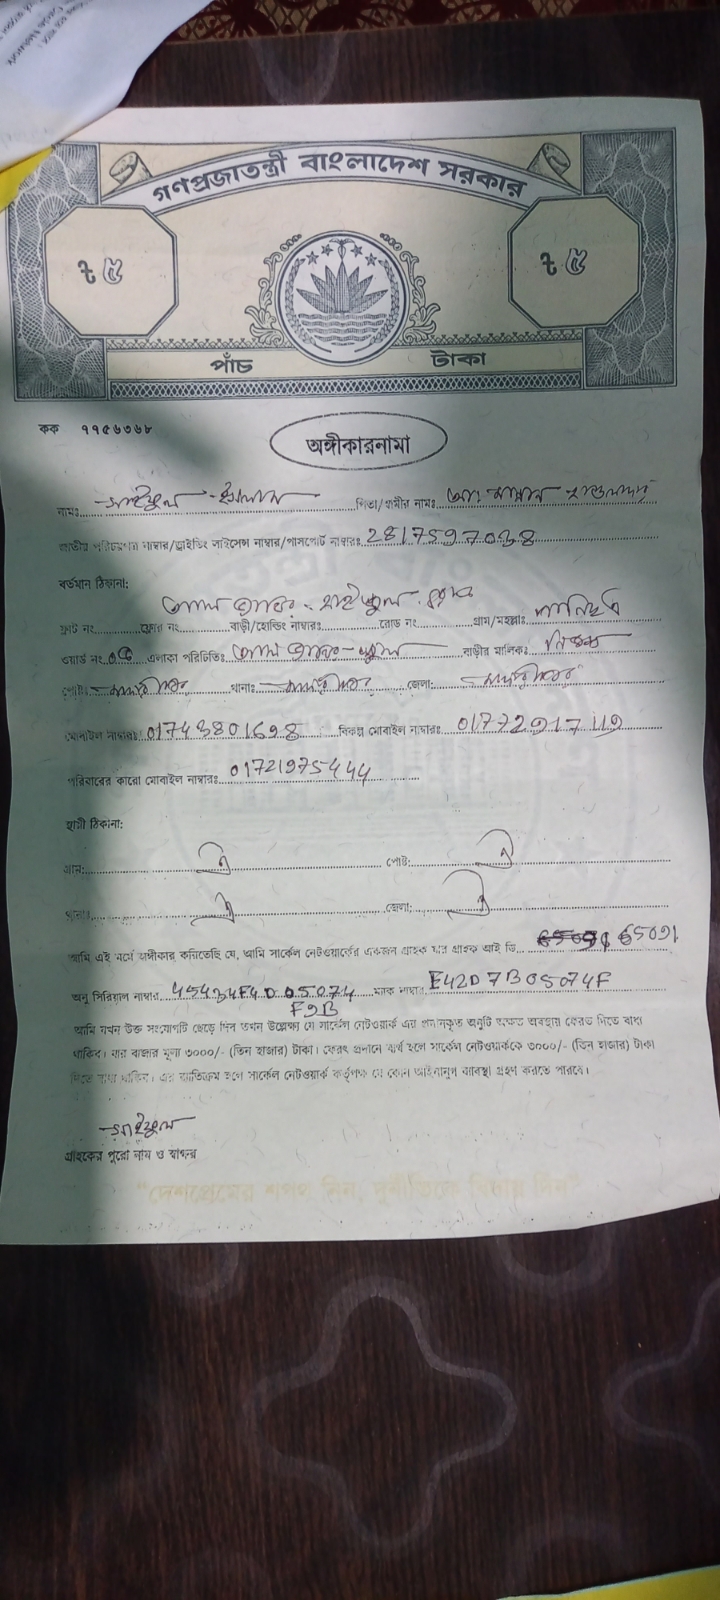 গণপ্রজাতন্ত্রী বাংলাদেশ সরকার
৳ ৫ ৳ ৫
পাঁচ টাকা
কক ৭৭৫৬৩৬৮
অঙ্গীকারনামা
নামঃ সাইফুল ইসলাম পিতা/স্বামীর নামঃ
জাতীয় পরিচয়পত্র নাম্বার/ড্রাইভিং লাইসেন্স নাম্বার/পাসপোর্ট নাম্বারঃ 2817597038
বর্তমান ঠিকানা:
ফ্লাট নং ফ্লোর নং বাড়ী/হোল্ডিং নাম্বারঃ রোড নং গ্রাম/মহল্লাঃ
ওয়ার্ড নং 05 এলাকা পরিচিতিঃ বাড়ীর মালিকঃ নিজস্ব
পোষ্টঃ থানাঃ জেলা:
মোবাইল নাম্বারঃ 01743801698 বিকল্প মোবাইল নাম্বারঃ 01772917119
পরিবারের কারো মোবাইল নাম্বারঃ 01721975444
স্থায়ী ঠিকানা:
গ্রাম: ঐ পোষ্ট: ঐ
থানাঃ ঐ জেলা: ঐ
আমি এই মর্মে অঙ্গীকার করিতেছি যে, আমি সার্কেল নেটওয়ার্কের একজন গ্রাহক যার গ্রাহক আই ডি 65091
অনু সিরিয়াল নাম্বার 45434F4D05074 ম্যাক নাম্বার E42D7B05074F
F9B
আমি যখন উক্ত সংযোগটি ছেড়ে দিব তখন উল্লেখ্য যে সার্কেল নেটওয়ার্ক এর প্রদানকৃত অনুটি অক্ষত অবস্থায় ফেরত দিতে বাধ্য
থাকিব। যার বাজার মূল্য ৩০০০/- (তিন হাজার) টাকা। ফেরৎ প্রদানে ব্যর্থ হলে সার্কেল নেটওয়ার্ককে ৩০০০/- (তিন হাজার) টাকা
দিতে বাধ্য থাকিব। এর ব্যতিক্রম হলে সার্কেল নেটওয়ার্ক কর্তৃপক্ষ যে কোন আইনানুগ ব্যবস্থা গ্রহণ করতে পারবে।
সাইফুল
গ্রাহকের পুরো নাম ও স্বাক্ষর
"দেশপ্রেমের শপথ নিন, দুর্নীতিকে বিদায় দিন"